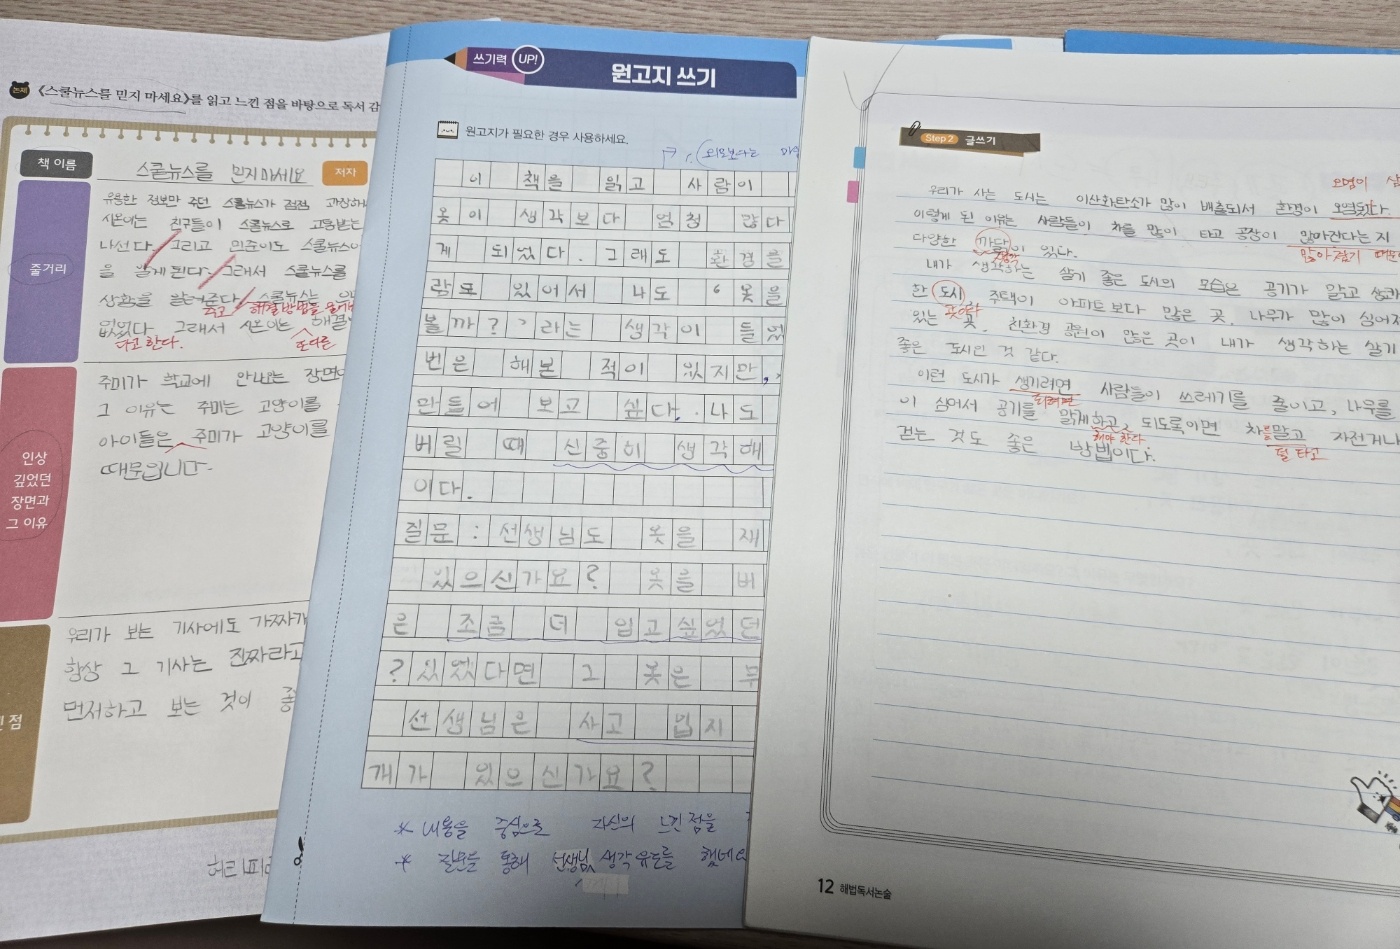 논제
《스쿨뉴스를 믿지 마세요》를 읽고 느낀 점을 바탕으로 독서 감
책 이름
스쿨뉴스를 믿지마세요
저자
줄거리
유용한 정보만 주던 스쿨뉴스가 점점 과장하
시온이는 친구들이 스쿨뉴스로 고통받는
나선다. 그리고 민준이도 스쿨뉴스
을 알게된다. 그래서 스쿨뉴스를
상황을 알려준다. 스쿨뉴스는
주고 해결방법을
없었다. 그래서 시온이는 해결
다고 한다.
또다른
인상
깊었던
장면과
그 이유
주미가 학교에 안나오는 장면
그 이유는 주미는 고양이를
아이들은 주미가 고양이를
때문입니다.
점
우리가 보는 기사에도 가짜가
항상 그 기사는 진짜라고
먼저하고 보는 것이 좋
쓰기력 UP!
원고지 쓰기
원고지가 필요한 경우 사용하세요.
외모보다는
이 책을 읽고 사람이
옷이 생각보다 엄청 많다
게 되었다. 그래도 환경을
람도 있어서 나도 ‘옷을
볼까?’라는 생각이 들었
번은 해본 적이 있지만,
만들어 보고 싶다. 나도
버릴 때 신중히 생각해
이다.
질문 : 선생님도 옷을 재
있으신가요? 옷을 버
은 조금 더 입고싶었던
? 있었다면 그 옷은 무
선생님은 사고 입지
개가 있으신가요?
* 내용을 중심으로 자신의 느낀점을
* 질문을 통해 선생님 생각 유도를 했네요
Step 2 글쓰기
오염이
우리가 사는 도시는 이산화탄소가 많이 배출되서 환경이 오염된다.
이렇게 된 이유는 사람들이 차를 많이 타고 공장이 많아진다는 지
많아졌기 때문
다양한 까닭이 있다.
내가 생각하는 살기 좋은 도시의 모습은 공기가 맑고
한 도시 주택이 아파트보다 많은 곳, 나무가 많이 심어져
곳이다
있는 곳, 친환경 공원이 많은 곳이 내가 생각하는 살기
좋은 도시인 것 같다.
이런 도시가 생기려면 사람들이 쓰레기를 줄이고, 나무를
되려면
이 심어서 공기를 맑게하고, 되도록이면 차를 말고 자전거나
해야 한다
덜 타고
걷는 것도 좋은 방법이다.
12 해법독서논술